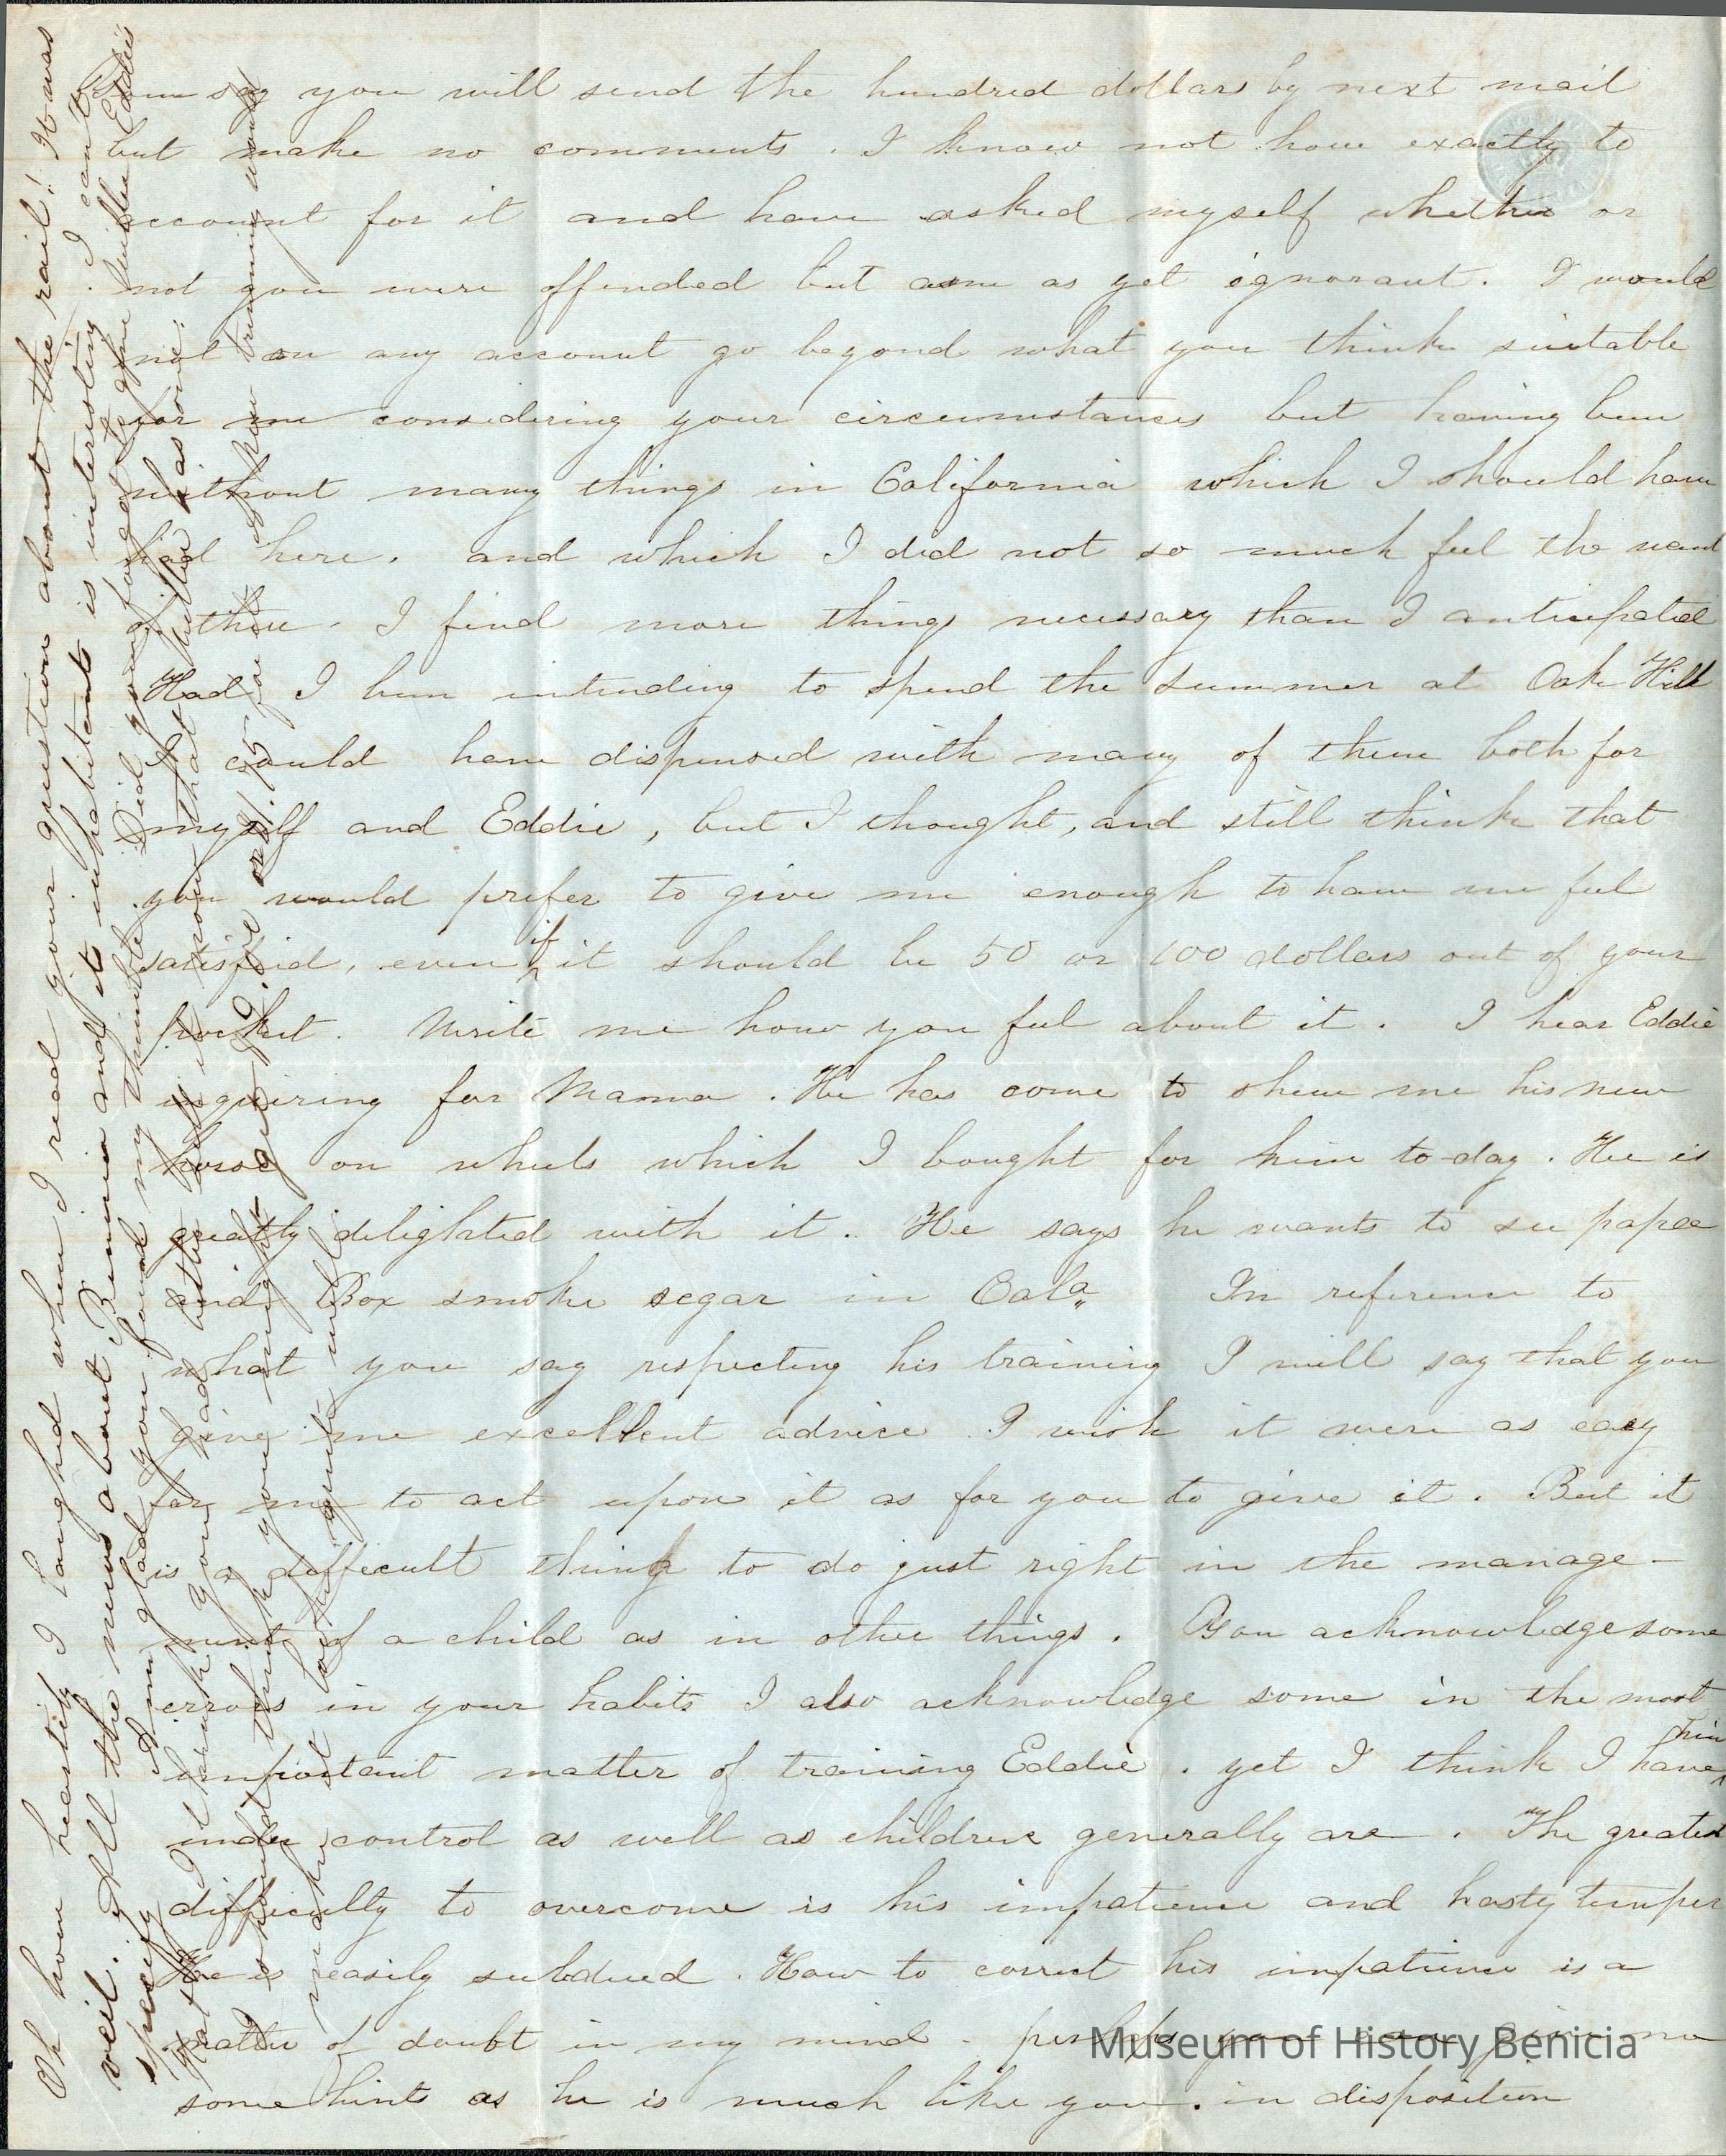 You say you will send the hundred dollars by next mail
but make no comments. I know not how exactly to
account for it and have asked myself whether or
not you were offended but am as yet ignorant. I would
not on any account go beyond what you think suitable
for me considering your circumstances but having been
without many things in California which I should have
had here. and which I did not so much feel the want
of there. I find more things necessary than I anticipated
Had I been intending to spend the summer at Oak Hill
I could have dispensed with many of them both for
myself and Eddie, but I thought, and still think that
you would prefer to give me enough to have me feel
satisfied, even if it should be 50 or 100 dollars out of your
pocket. Write me how you feel about it. I hear Eddie
inquiring for Mama. He has come to shew me his new
horse on wheels which I bought for him to-day. He is
greatly delighted with it. He says he wants to see papa
and Box smoke segar in Cala. In reference to
what you say respecting his training I will say that you
give me excellent advice I wish it were as easy
for me to act upon it as for you to give it. But it
is a difficult thing to do just right in the manage-
ment of a child as in other things. You acknowledge some
errors in your habits I also acknowledge some in the most
important matter of training Eddie. yet I think I have him
under control as well as children generally are. The greatest
difficulty to overcome is his impatience and hasty temper
He is easily subdued. How to correct his impatience is a
matter of doubt in my mind. perhaps you can give me
some hints as he is much like you. in disposition
Oh how heartily I laughed when I read your question about the rail! It was
veil. All the news about Benicia and its inhabitants is interesting. I can't
specify. I am glad you found my thimble. Did you forget to give Willie Eddie's
I think you had better
that Willie has one.
I should think your
trimming would
make it last quite well
Museum of History Benicia